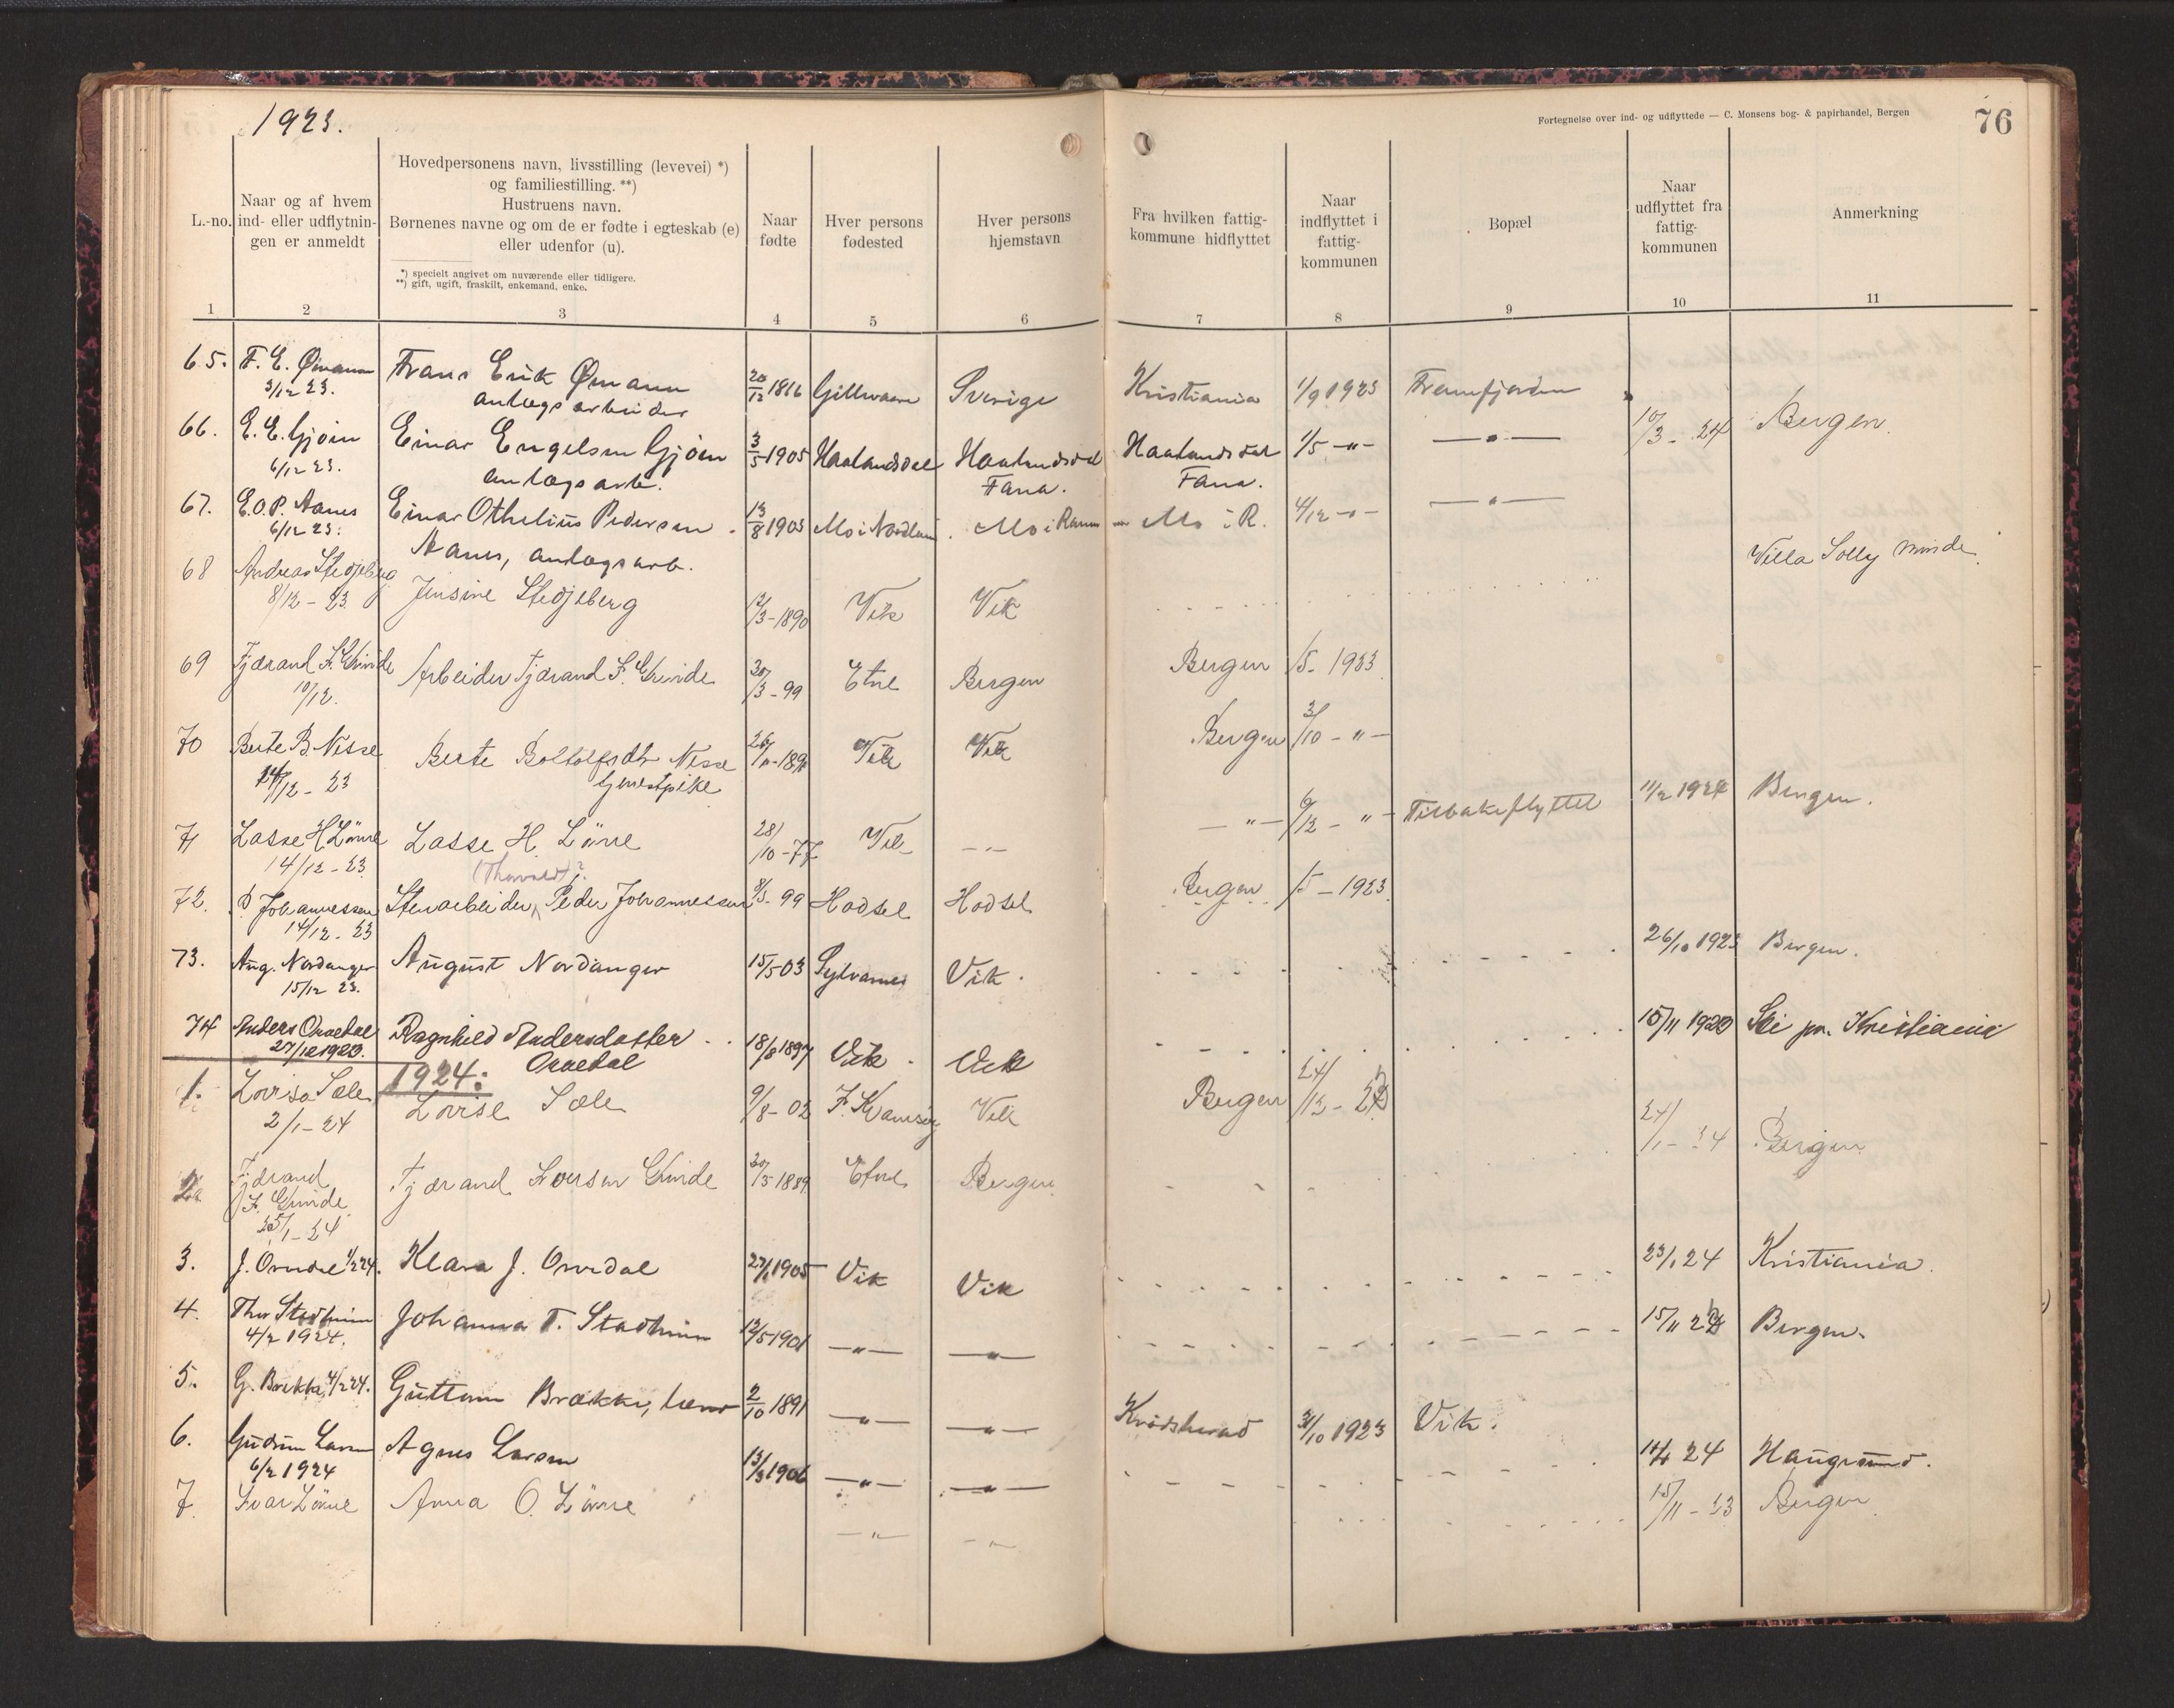 1923.
Fortegnelse over ind- og udflyttede — C. Monsens bog- & papirhandel, Bergen
76
L.-no.
Naar og af hvem
ind- eller udflytnin-
gen er anmeldt
Hovedpersonens navn, livsstilling (levevei) *)
og familiestilling. **)
Hustruens navn.
Børnenes navne og om de er fødte i egteskab (e)
eller udenfor (u).
*) specielt angivet om nuværende eller tidligere.
**) gift, ugift, fraskilt, enkemand, enke.
Naar
fødte
Hver persons
fødested
Hver persons
hjemstavn
Fra hvilken fattig-
kommune hidflyttet
Naar
indflyttet i
fattig-
kommunen
Bopæl
Naar
udflyttet fra
fattig-
kommunen
Anmerkning
1 2 3 4 5 6 7 8 9 10 11
65. F. E. Ømann Frans Erik Ømann 20/12 Sverige Kristiania 1/9 1923
3/12 23. anlægsarbeider
66. E. E. Gjøen Einar Engelsen Gjøen 3/5 1905 Haalandsdal Haalandsdal Haalandsdal 1/5 -"- —"— 10/3 - 24 Bergen.
6/12 23. anlægsarb. Fana. Fana.
67. E.O.P. Aanes Einar Othelius Pedersen 13/8 1903 Mo i Nordland Mo i Ranen Mo i R. 4/12 -"- —"—
6/12 23. Aanes, anlægsarb.
68 Andreas Stedjeberg Jensine Stedjeberg 12/3-1890 Vik Vik Villa Solly Minde
8/12 - 23.
69 Tjærand F. Grinde Arbeider Tjærand F. Grinde 30/3 - 99 Etne Bergen Bergen /5 - 1923
10/12.
70 Berte B. Nisse Berte Boltolfsdtr Nisse Vik Vik Bergen 3/10 - " -
14/12 - 23 tjenestpike
71 Lasse H Lønne Lasse H. Lønne 28/10 - 77 Vik - " - — " — 6/12 - " - Tilbakeflyttet 11/2 1924 Bergen.
14/12 - 23
(Thorvald)?
72. P Johannessen Stenarbeider Peder Johannessen 8/3 - 99 Hadsel Hadsel Bergen /5 - 1923
14/12 - 23
73. Aug. Nordanger August Nordanger 15/5 03 Sylvarnes Vik. 26/10 1923 Bergen.
15/12 23.
74 Anders Orvedal Ragnhild Andersdatter 18/8 1897 Vik Vik 15/11 1923 Ski pr. Kristiania
27/12 1923. Orvedal
1924:
1. Lovise Sæle Lovise Sæle 9/8 - 02 F. Kvamsøy Vik Bergen 24/12 - 23
2/1 - 24
2. Tjærand Tjærand Iversen Grinde Etne Bergen 24/1 - 24 Bergen
F. Grinde
25/1 - 24
3. J. Orvedal 1/2 24. Klara J. Orvedal 27/1 1905 Vik Vik 23/1 24 Kristiania.
4. Thor Stadheim Johanna T. Stadheim 12/5 1901 —"— —"— 15/11 23 Bergen.
4/2 1924.
5. G. Brekke 4/2 24. Guttorm Brække, lærer 2/10 1891 —"— —"— Krødsherad 31/10 1923 Vik.
6. Gudrun Larsen Agnes Larsen 13/3 1906 —"— —"— 24 Haugesund.
6/2 1924
7. Ivar Lønne Anna O. Lønne —"— —"— 15/11 - 23 Bergen